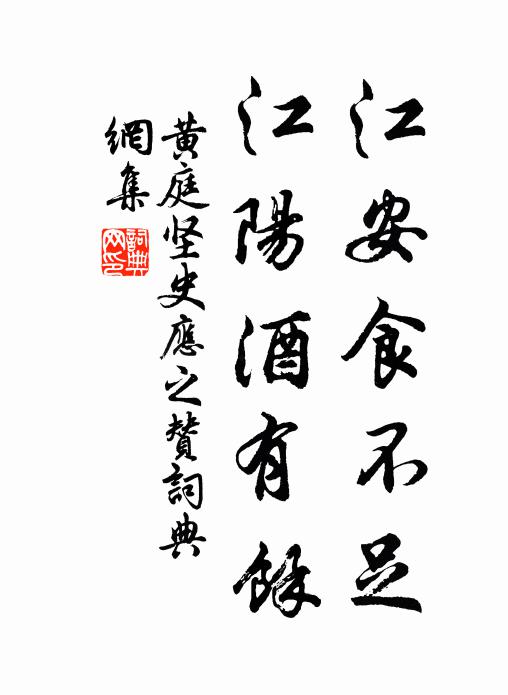 江安食不足
江陽酒有餘
黄庭坚史應之贊詞典
網集
詞典網印